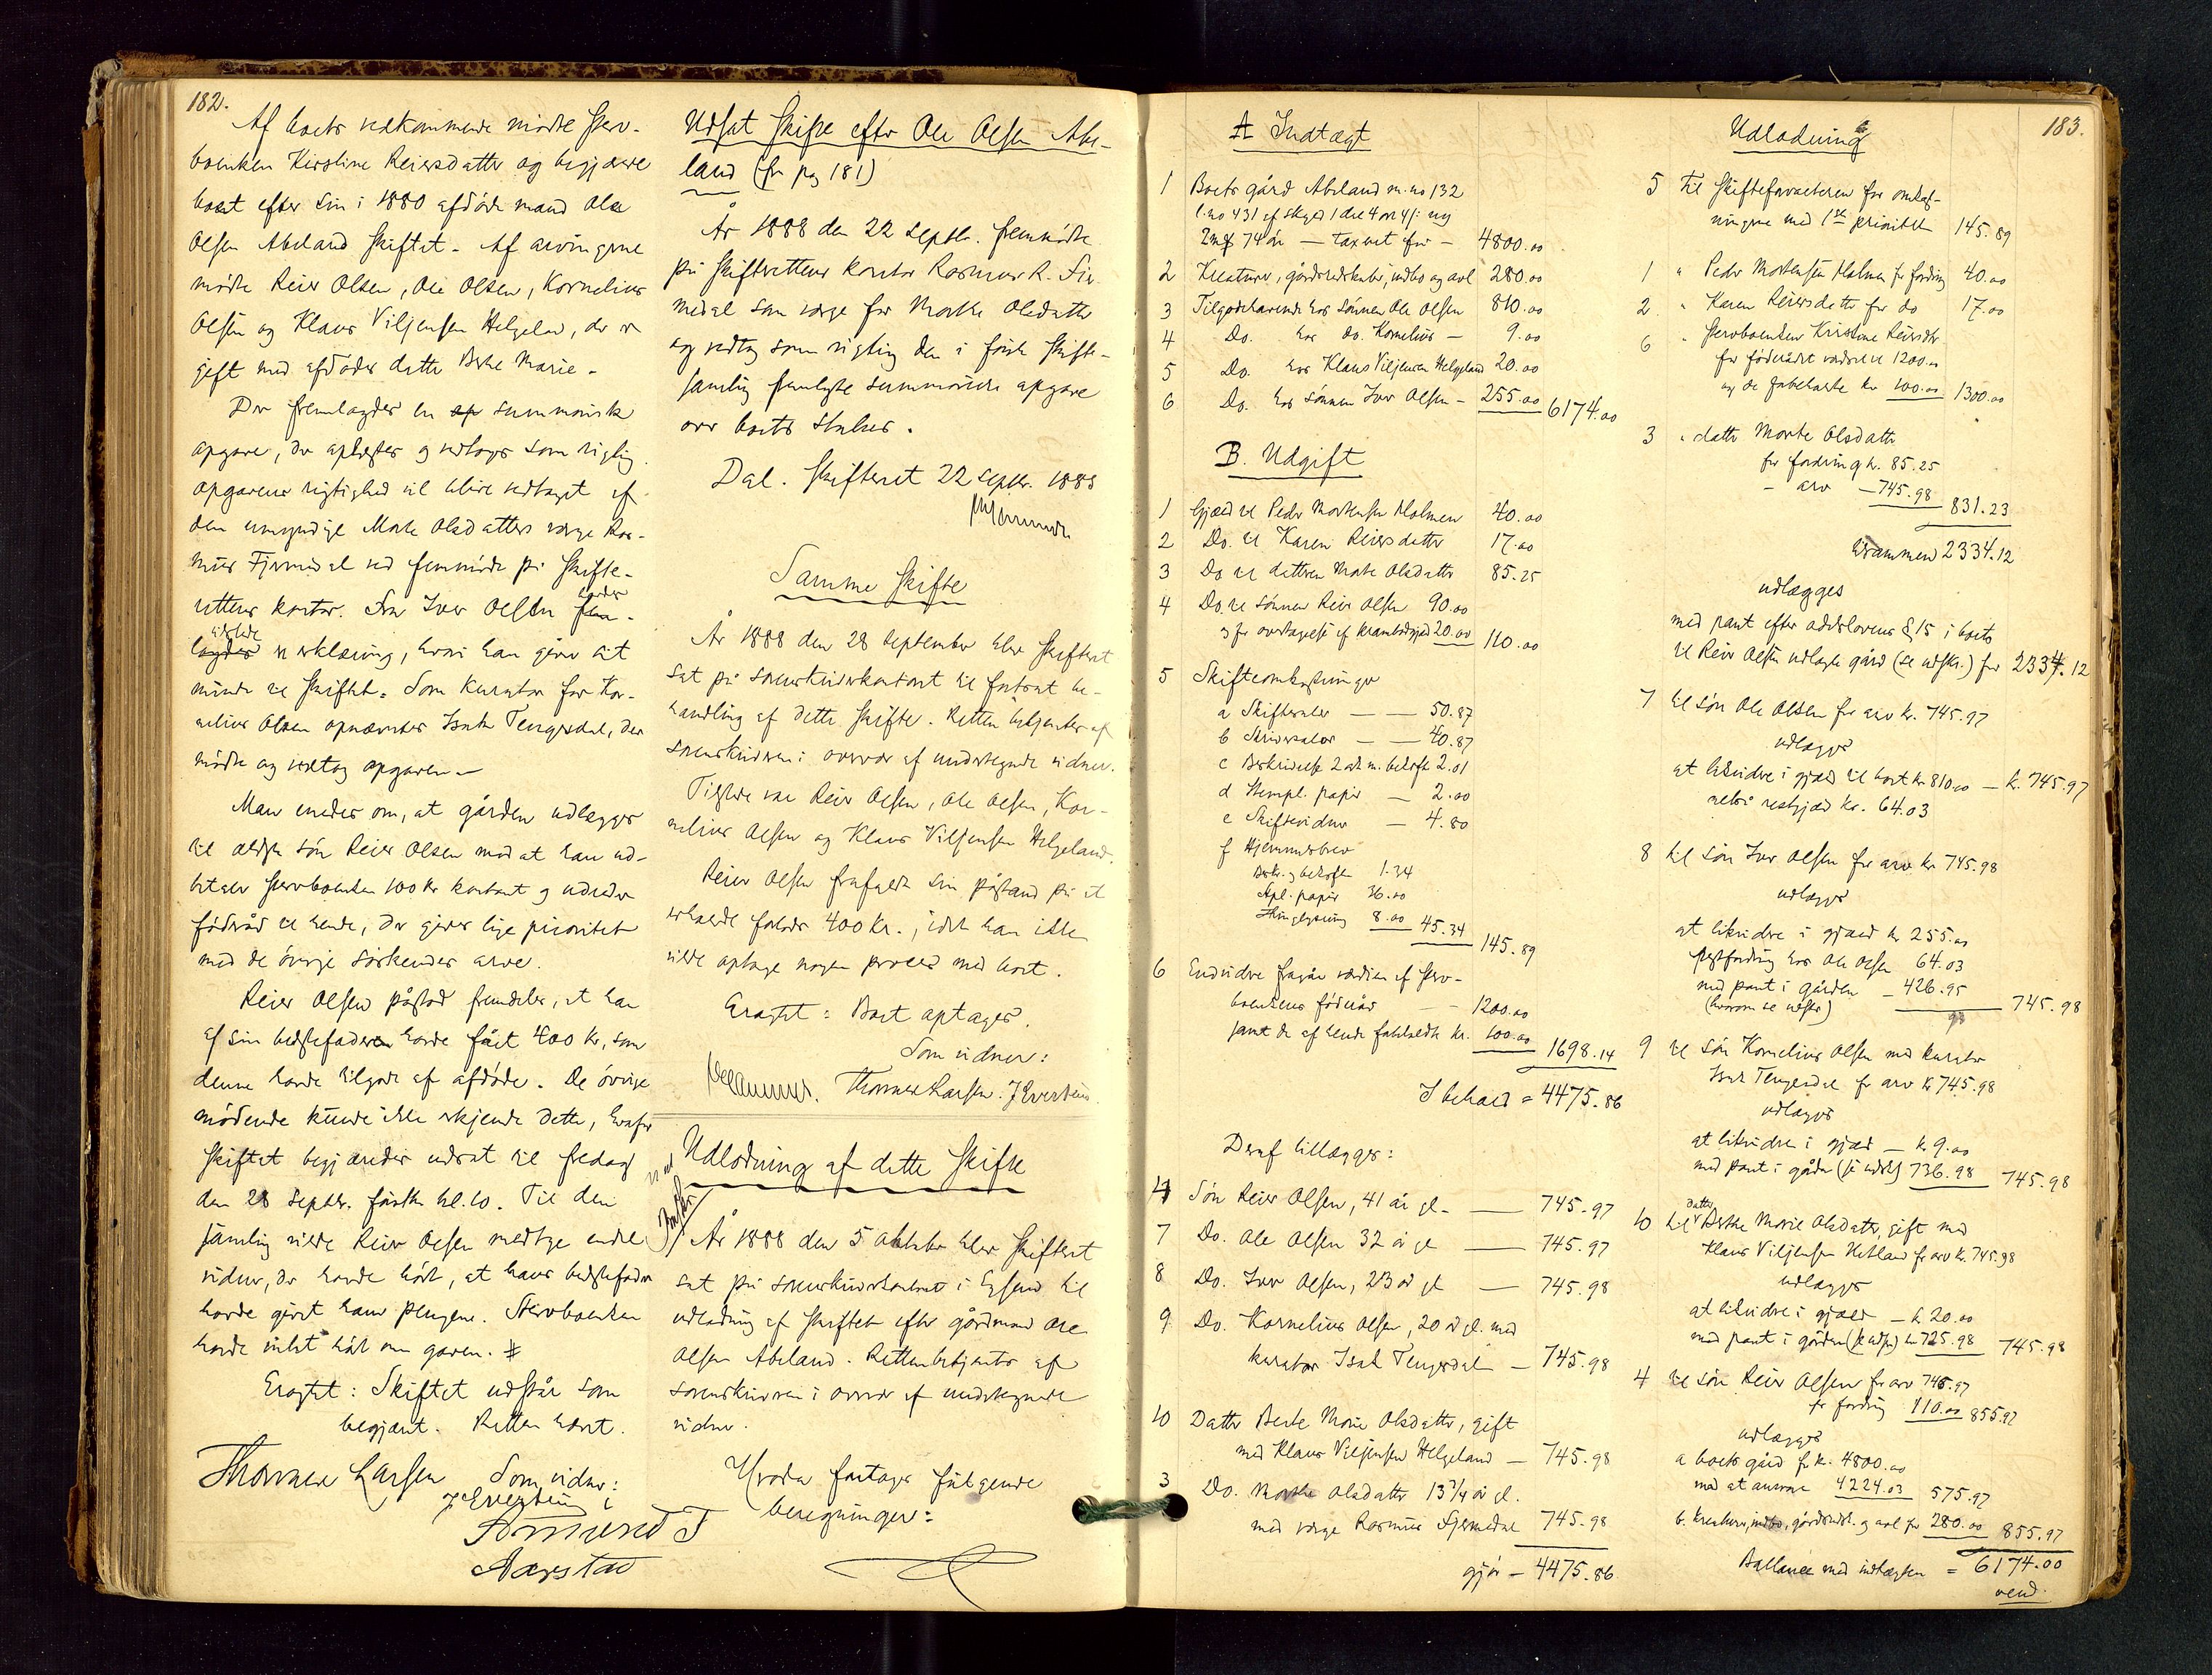 182.
Af boets vedkommende mødte sterv-
boenken Kirstine Reiersdatter og begjærte
boet efter sin i 1880 afdøde mand Ole
Olsen Abeland skiftet. Af arvingerne
mødte Reier Olsen, Ole Olsen, Kornelius
Olsen og Klaus Viljensen Helgeland, der er
gift med afdødes datter Berte Marie.
Der fremlagdes en summarisk
opgave, der oplæstes og vedtoges som rigtig.
Opgavens rigtighed vil blive vedtaget af
den umyndige Marte Olsdatters værge Ras-
mus Fjermedal ved fremmøde på skifte-
rettens kontor. Fra Iver Olsen havdes
en erklæring, hvori han giver sit
minde til skiftet. Som kurator for Kor-
nelius Olsen opnævntes Isak Tengesdal, der
mødte og vedtog opgaven.
Man enedes om, at gården udlægges
til ældste søn Reier Olsen mod at han ud-
betaler stervboenken 100 kr kontant og udreder
føderåd til hende, der gives lige prioritet
med de øvrige søskendes arve.
Reier Olsen påstod fremdeles, at han
af sin bedstefader havde fået 400 kr, som
denne havde tilgode af afdøde. De øvrige
mødende kunde ikke erkjende dette, hvorfor
skiftet begjæredes udsat til fredag
den 28 septbr. førstk. kl. 10. Til den
samling vilde Reier Olsen medtage endel
vidner, der havde hørt, at hans bedstefader
havde givet ham pengene. Stervboenken
havde intet hørt om gaven. #
Eragtet: Skiftet udstår som
begjært. Retten hævet.
Som vidner:
Thomas Larsen
J Evertsen
Amund T
Aarstad
Udsat skifte efter Ole Olsen Abe-
land (fr pag 181)
År 1888 den 22 septbr. fremmødte
på skifterettens kontor Rasmus R. Fjer-
medal som værge for Marthe Olsdatter
og vedtog som rigtig den i første skifte-
samling fremlagte summariske opgave
over boets status.
Dal. Skifteret 22 septbr. 1888
Samme skifte
År 1888 den 28 september blev skifteret
sat på sorenskriverkontoret til fortsat be-
handling af dette skifte. Retten betjentes af
sorenskriveren i overvær af undertegnede vidner.
Tilstede var Reier Olsen, Ole Olsen, Kor-
nelius Olsen og Klaus Viljensen Helgeland.
Reier Olsen frafaldt sin påstand på at
erholde forlods 400 kr., idet han ikke
vilde optage nogen proces med boet.
Eragtet: Boet optages.
Som vidner:
Thomas Larsen. J Evertsen
Udlodning af dette skifte
År 1888 den 5 oktober blev skifteret
sat på sorenskriverkontoret i Egersund til
udlodning af skiftet efter gårdmand Ole
Olsen Abeland. Retten betjentes af
sorenskriveren i overvær af undertegnede
vidner.
Hvorda foretoges følgende
beregninger:
A Indtægt
1 Boets gård Abeland m. no 132
l. no 431 af skyld 1 dre 4 ort 4 s: ny
2 m# 74 ør — taxeret for — 4800.00
2 Kreature, gårdsredskaber, indbo og avl 280.00
3 Tilgodehavende hos sønnen Ole Olsen 810.00
4 Do. hos do. Kornelius — 9.00
5 Do. hos Klaus Viljensen Helgeland 20.00
6 Do. hos sønnen Iver Olsen — 255.00 6174.00
B. Udgift
1 Gjæld til Peder Mortensen Holmen 40.00
2 Do. til Karen Reiersdatter 17.00
3 Do til datteren Marte Olsdatter 85.25
4 Do. til sønnen Reier Olsen 90.00
og for overtagelse af krambodgjæld 20.00 110.00
5 Skifteomkostninger
a Skiftesaler — — 50.87
b Skriversaler — — 40.87
c Beskrivelse 2 ark m. bekræft 2.01
d Stempl. papir — 2.00
e Skiftevidner — 4.80
f Hjemmelsbrev
beskr. og bekræften 1.34
Stpl. papir 36.00
Thinglysning 8.00 45.34 145.89
6 Endvidere fragår værdien af sterv-
boenkens føderåd — 1200.00
samt de af hende forbeholdte kr. 100.00 1698.14
I behold = 4475.86
Deraf tillægges:
4 Søn Reier Olsen, 41 år gl. — 745.97
7 Do. Ole Olsen 32 år gl — 745.97
8 Do. Iver Olsen, 23 år gl — 745.98
9 Do. Kornelius Olsen, 20 år gl. med
kurator Isak Tengesdal — 745.98
10 Datter Berte Marie Olsdatter, gift
med Klaus Viljensen Helgeland — 745.98
3 Do. Marthe Olsdatter 13 3/4 år gl.
med værge Rasmus Fjermedal 745.98
gjør — 4475.86
183.
Udlodning
5 Til skifteforvalteren for omkost-
ningerne med 1ste prioritet 145.89
1 " Peder Mortensen Holmen for fordring 40.00
2 " Karen Reiersdatter for do 17.00
6 " Stervboenken Kirstine Reiersdtr
for føderådet vurderet til 1200.00
og de forbeholdte kr 100.00 1300.00
3 " datter Marte Olsdatter
for fordring kr. 85.25
— arv — 745.98 831.23
tilsammen 2334.12
udlægges
med pant efter odelslovens § 15 i boets
til Reier Olsen udlagte gård (se udskr.) for 2334.12
7 til søn Ole Olsen for arv kr. 745.97
udlægges
at likvidere i gjæld til boet kr 810.00 — kr. 745.97
rest gjæld kr. 64.03
8 til søn Iver Olsen for arv kr 745.98
udlægges
at likvidere i gjæld kr 255.00
restfordring hos Ole Olsen 64.03
med pant i gården — 426.95
(hvorom se udskr) 745.98
9 til søn Kornelius Olsen med kurator
Isak Tengesdal for arv kr 745.98
udlægges
at likvidere i gjæld — kr 9.00
med pant i gården (se udskr) 736.98 745.98
10 til datter Berthe Marie Olsdatter, gift med
Klaus Viljensen Hetland for arv kr. 745.98
udlægges
at likvidere i gjæld — kr 20.00
med pant i gården (se udskr) kr 725.98 745.98
4 til søn Reier Olsen for arv 745.97
for fordring 110.00 855.97
udlægges
a boets gård for kr. 4800.00
med at ansvare 4224.03 575.97
b. kreature, indbo, gårdsredsk. og avl for 280.00 855.97
Ballance med indtægten = 6174.00
vend.